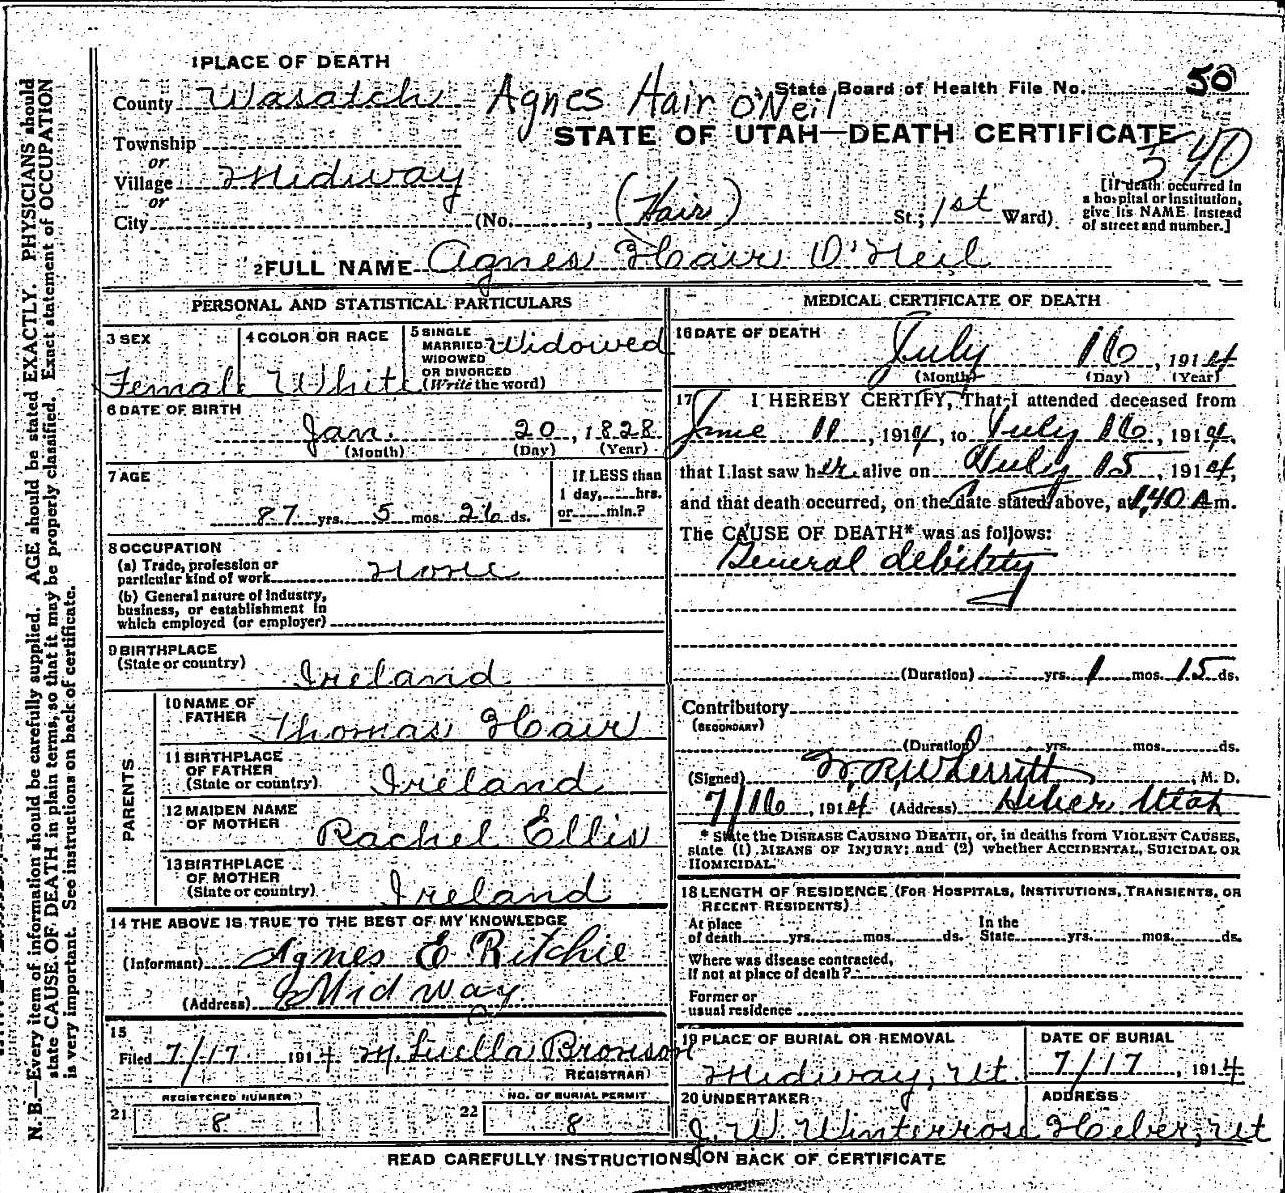 1 PLACE OF DEATH
County Wasatch Agnes Hair O'Neil State Board of Health File No. 50
Township STATE OF UTAH—DEATH CERTIFICATE
or 340
Village Midway
or
City (No. , (Hair) St.; 1st Ward)
[If death occurred in
a hospital or institution,
give its NAME instead
of street and number.]
2 FULL NAME Agnes Hair O'Neil
PERSONAL AND STATISTICAL PARTICULARS
3 SEX Female
4 COLOR OR RACE White
5 SINGLE
MARRIED
WIDOWED
OR DIVORCED
(Write the word) Widowed
6 DATE OF BIRTH
Jan. 20, 1828
(Month) (Day) (Year)
7 AGE
87 yrs. 5 mos. 26 ds.
If LESS than
1 day, hrs.
or min.?
8 OCCUPATION
(a) Trade, profession or
particular kind of work None
(b) General nature of industry,
business, or establishment in
which employed (or employer)
9 BIRTHPLACE
(State or country) Ireland
PARENTS
10 NAME OF
FATHER Thomas Hair
11 BIRTHPLACE
OF FATHER
(State or country) Ireland
12 MAIDEN NAME
OF MOTHER Rachel Ellis
13 BIRTHPLACE
OF MOTHER
(State or country) Ireland
14 THE ABOVE IS TRUE TO THE BEST OF MY KNOWLEDGE
(Informant) Agnes E Ritchie
(Address) Midway
15
Filed 7/17 1914 M. Luella Bronson
REGISTRAR
21 REGISTERED NUMBER
8
22 NO. OF BURIAL PERMIT
8
MEDICAL CERTIFICATE OF DEATH
16 DATE OF DEATH
July 16, 1914
(Month) (Day) (Year)
17 I HEREBY CERTIFY, That I attended deceased from
June 11, 1914, to July 16, 1914,
that I last saw her alive on July 15, 1914,
and that death occurred, on the date stated above, at 1,40 A m.
The CAUSE OF DEATH* was as follows:
General debility
(Duration) yrs. 1 mos. 15 ds.
Contributory
(SECONDARY)
(Duration) yrs. mos. ds.
(Signed) W.R. Wherritt, M. D.
7/16, 1914 (Address) Heber Utah
* State the DISEASE CAUSING DEATH, or, in deaths from VIOLENT CAUSES,
state (1) MEANS OF INJURY; and (2) whether ACCIDENTAL, SUICIDAL OR
HOMICIDAL.
18 LENGTH OF RESIDENCE (FOR HOSPITALS, INSTITUTIONS, TRANSIENTS, OR
RECENT RESIDENTS)
At place
of death yrs. mos. ds.
In the
State yrs. mos. ds.
Where was disease contracted,
if not at place of death?
Former or
usual residence
19 PLACE OF BURIAL OR REMOVAL
Midway, Ut.
DATE OF BURIAL
7/17, 1914
20 UNDERTAKER
J. W. Winterrose
ADDRESS
Heber, Ut
READ CAREFULLY INSTRUCTIONS ON BACK OF CERTIFICATE
N. B.—Every item of information should be carefully supplied. AGE should be stated EXACTLY. PHYSICIANS should
state CAUSE OF DEATH in plain terms, so that it may be properly classified. Exact statement of OCCUPATION
is very important. See instructions on back of certificate.